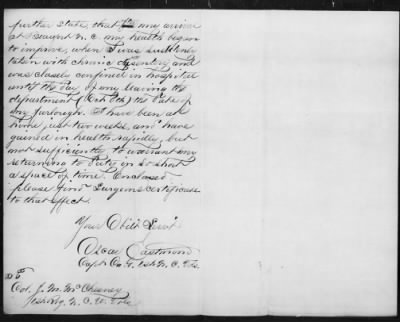 further state, that my arrival
at Beaufort N. C. my health began
to improve, when I was suddenly
taken with chronic disentery and
was closely confined in hospital
until the day of my leaving the
department (Oct 8th) the date of
my furlough. I have been at
home just two weeks, and have
gained in health rapidly, but
not sufficiently to warrant my
returning to duty in so short
a space of time. Enclosed
please find Surgeons certificate
to that effect.
Your Obdt Servt
Oscar Eastmond
Capt Co. 1st N. C. Vols.
Col. J. M. McChesney
N. C. Vols